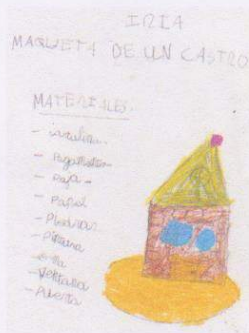 IRIA
MAQUETA DE UN CASTRO
MATERIALES.
- Pegamento
- Paja
- Papel
- Piedras
- Pintura
Ventana
- Puerta